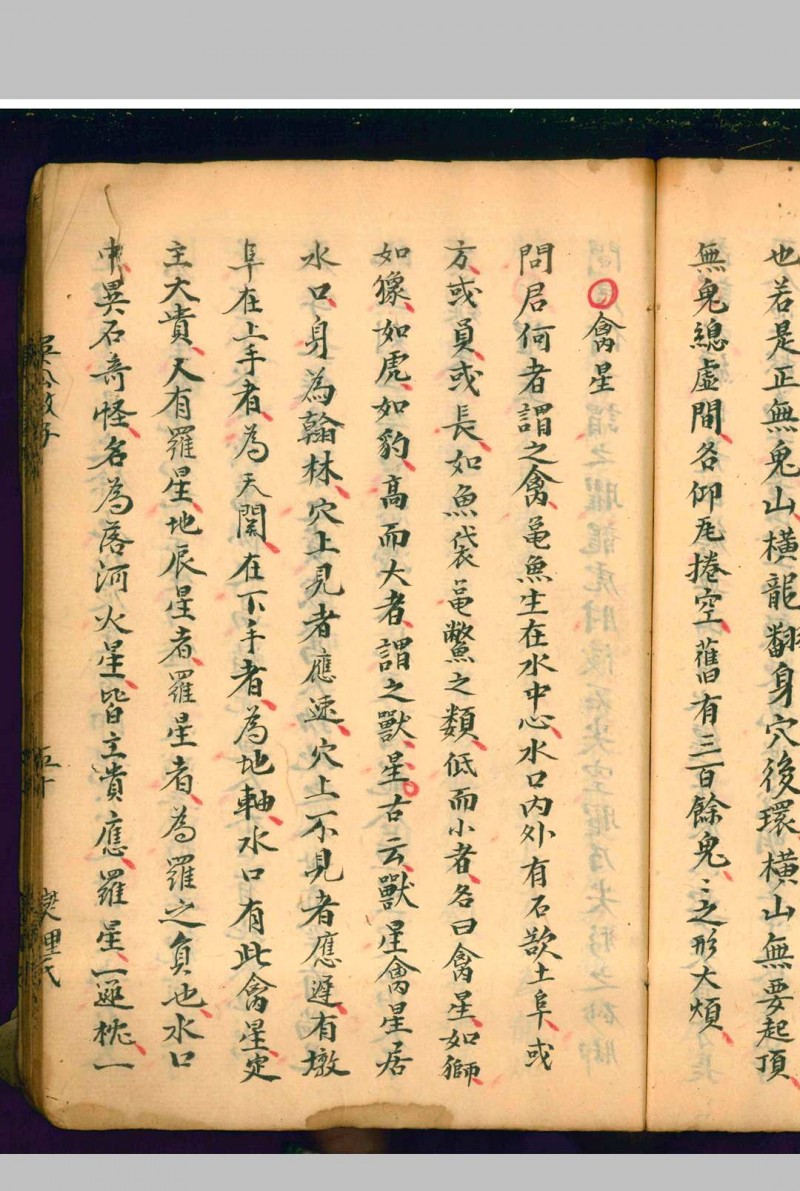 也若是正無鬼山橫龍翻身穴後環橫山無要起頂
無鬼總虛間名仰瓦捲空舊有三百餘鬼〻之形大煩
禽星
問君何者謂之禽黽魚生在水中心水口内外有石欤土阜或
方或員或長如魚袋黽鱉之類低而小者名曰禽星如獅
如獴如虎如豹高而大者謂之獸星古云獸星禽星居
水口身為翰林穴上見者應速穴上不見者應遲有墩
阜在上手者為天關在下手者為地軸水口有此禽星定
主大貴又有羅星地辰星者羅星者為羅之負也水口
中異石奇怪名為落河火星皆主貴應羅星一逕枕一
五十